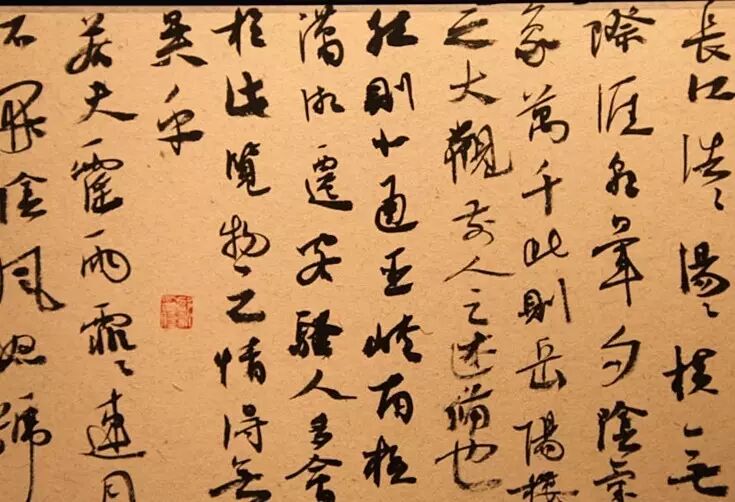 長江浩〻湯〻橫無
際涯朝暉夕陰氣
象萬千此則岳陽樓
之大觀前人之述備也
然則北通巫峽南極
瀟湘遷客騷人多會
於此覽物之情得無
異乎
若夫霪雨霏〻連月
不開陰風怒號